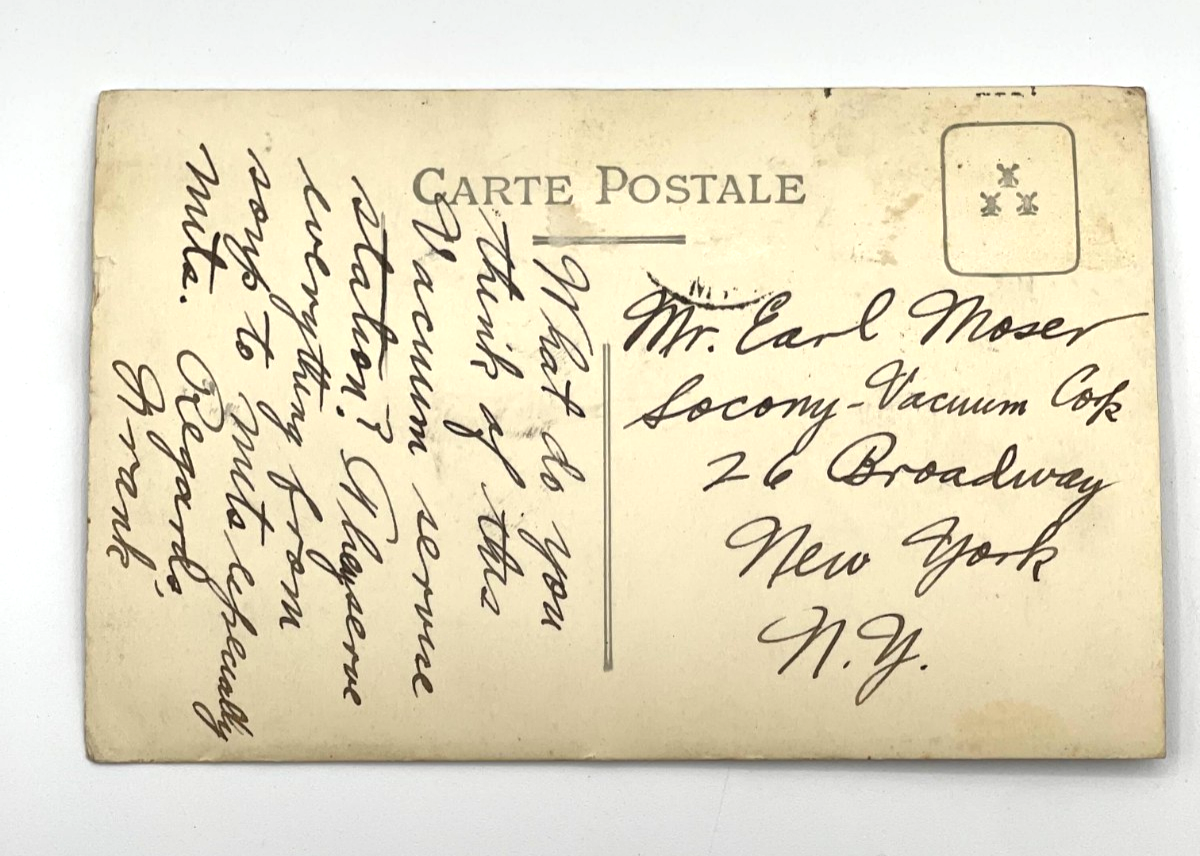 CARTE POSTALE
What do you
think of this
Vacuum service
station? They serve
everything from
soup to nuts especially
nuts. Regards,
Frank
Mr. Earl Moser
Socony-Vacuum Corp
26 Broadway
New York
N.Y.